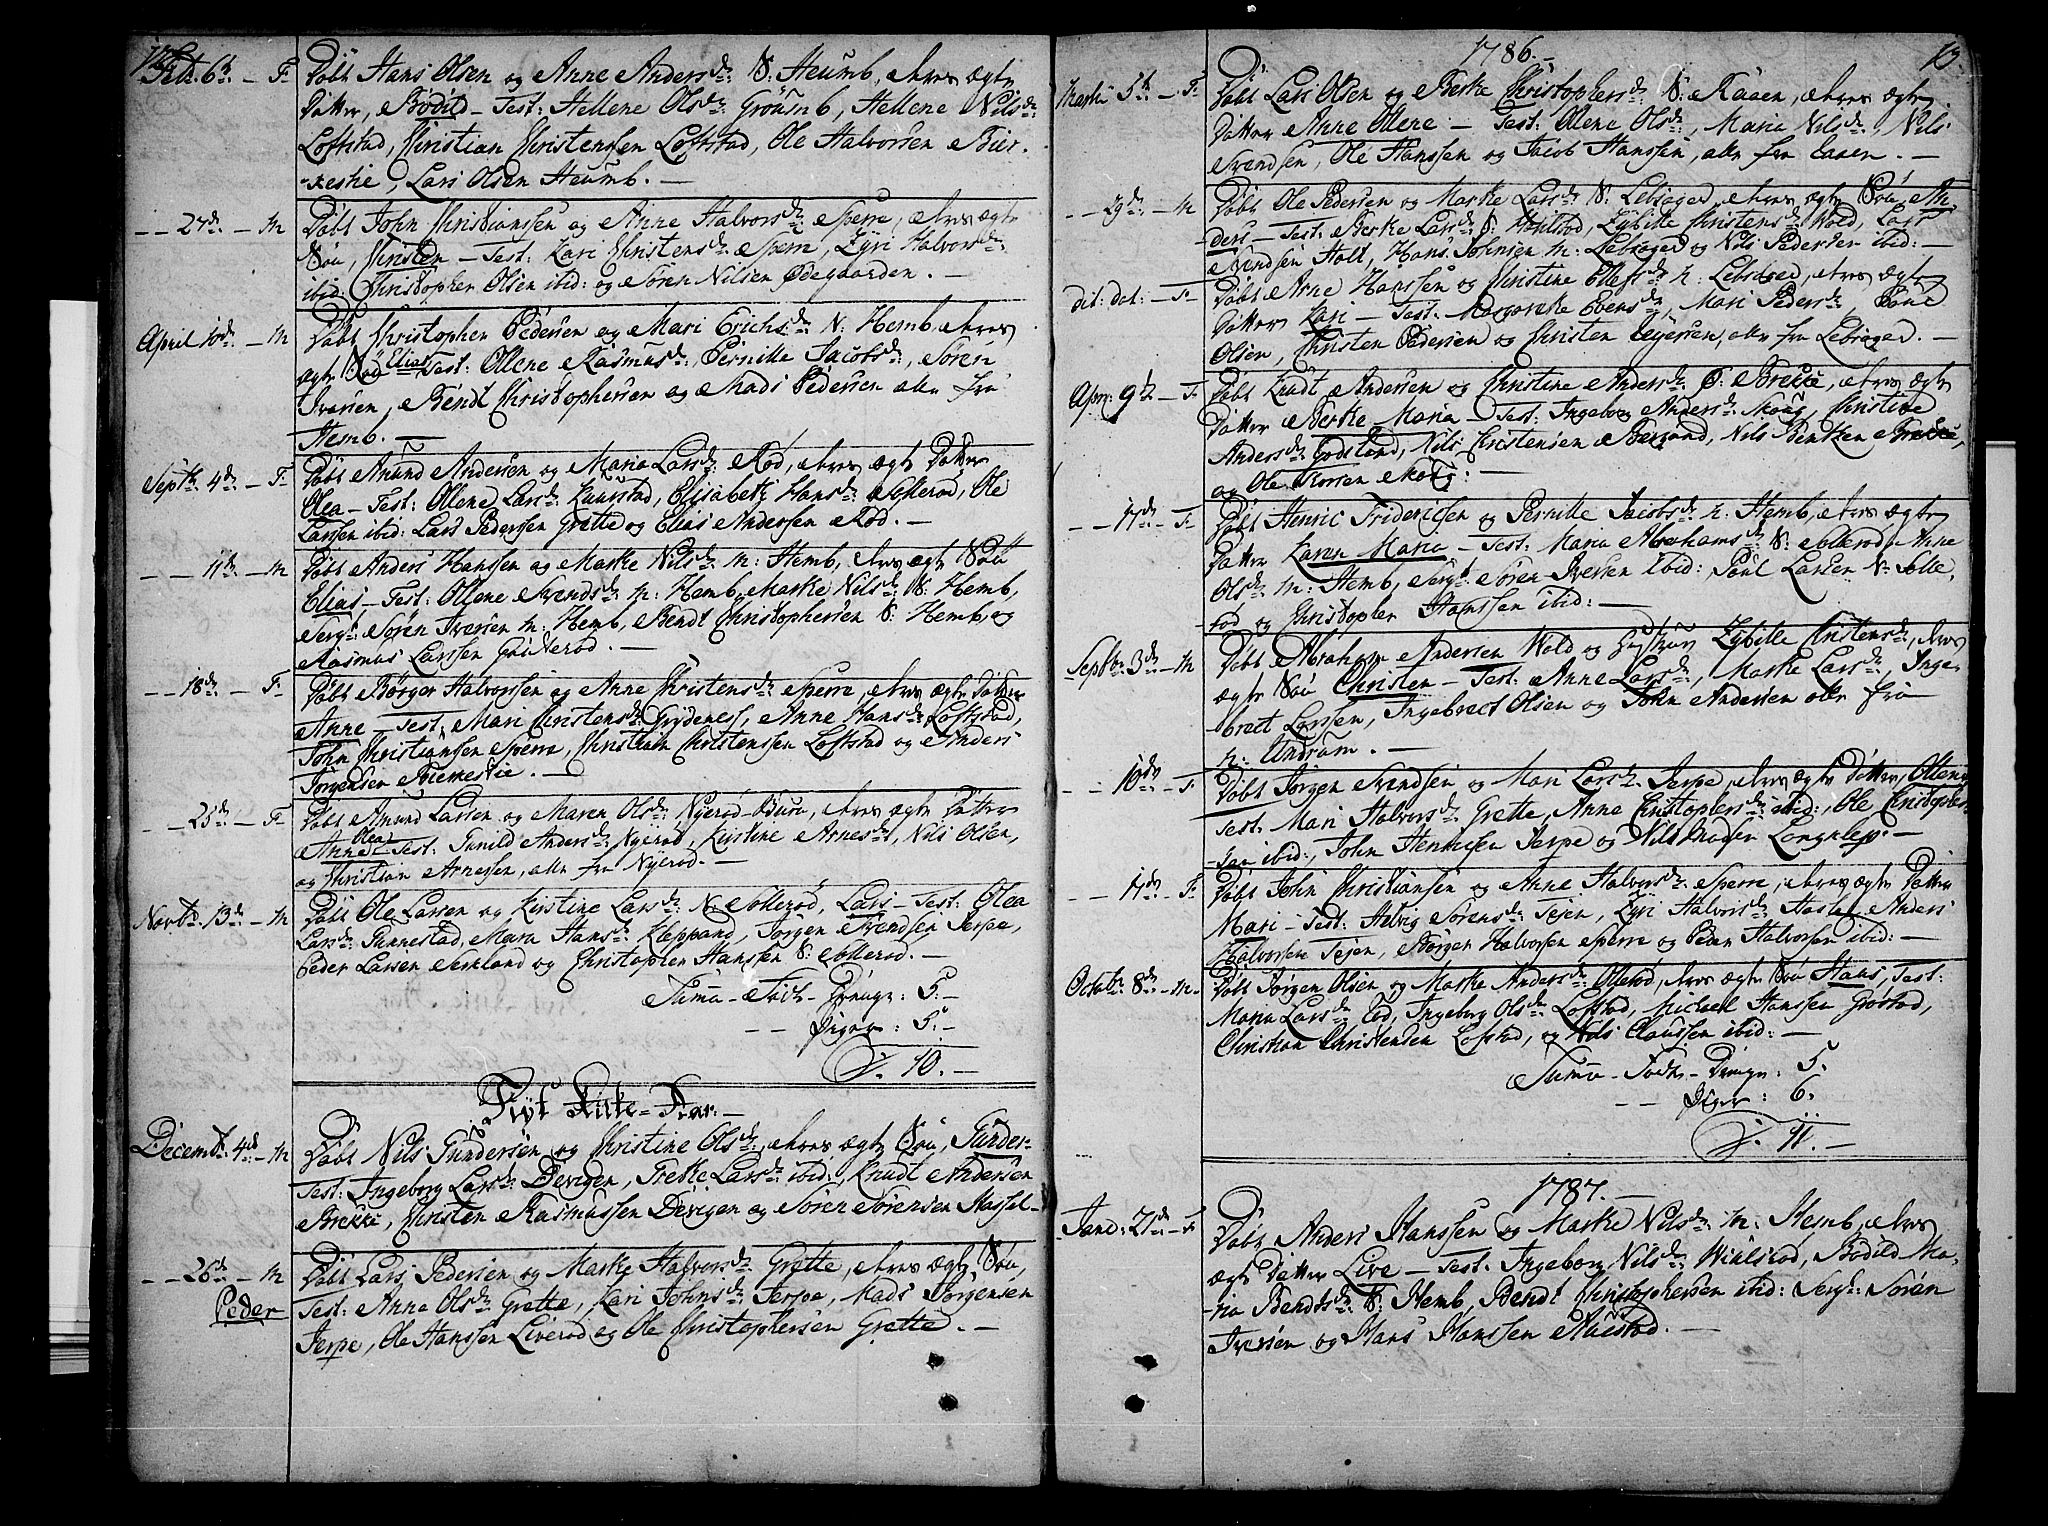 12.
Febr. 6t: – F: Döbt Hans Olsen og Anne Andersdr: S: Heumb, deres ægte
Datter, Bodil – Test: Hellene Olsdr: Gröumb, Hellene Nilsdr:
Loftstad, Christian Christenssen Loftstad, Ole Halvorssen Bier-
-keskie, Lars Olsen Heumb. –
– – 27de: – M Döbt John Christianssen og Anne Halvorsdr: Sperre, deres ægte
Sön, Christen – Test: Kari Christensdr: Sperre, Zyri Halvorsdr:
ibid: Christopher Olsen ibid: og Sören Nilsen Ødegaarden. –
April 10de: – M Döbt Christopher Pedersen og Mari Erichsdr: N: Hemb, deres
ægte Sön Elias Test: Ollene Rasmusdr:, Pernille Jacobsdr:, Sören
Iversen, Bendt Christophersen og Mads Pedersen alle fra
Hemb. –
Septbr: 4de: – F: Döbt Amund Andersen og Maria Larsdr: Röd, deres ægte Datter
Olea – Test: Ollene Larsdr: Knarstad, Elisabeth Hansdr: Solleröd, Ole
Larssen ibid: Lars Pederssen Grette og Elias Andersen Röd. –
– – 11te – M Döbt Anders Hanssen og Marthe Nilsdr: M: Hemb, deres ægte Sön
Elias – Test: Ollene Svendsdr: M: Hemb, Marthe Nilsdr: S: Hemb,
Sergt: Sören Iversen M: Hemb, Bendt Christophersen S: Hemb, og
Rasmus Larssen Gouteröd. –
– – 18de: – F: Döbt Börger Halvorssen og Anne Christensdr: Sperre, deres ægte Datter
Anne – Test: Mari Christensdr: Grydeness, Anne Hansdr: Loftstad,
John Christianssen Sperre, Christian Christenssen Loftstad og Anders
Jörgensen Bierkeskie. –
– – 25de – F: Döbt Amund Larsen og Maren Olsdr: Nyeröd, deres ægte Datter
Anne Olea – Test: Gunild Andersdr: Nyeröd, Kirstine Arnesdr:, Nils Olsen,
og Christian Arnessen, alle fra Nyeröd. –
Novbr: 13de – M Döbt Ole Larsen og Kirstine Larsdr: N: Solleröd, Lars – Test: Olea
Larsdr: Gunnestad, Mara Hansdr: Kleppand, Jörgen Svendsen Jerpe,
Peder Larsen Semland og Christopher Hanssen S: Solleröd. –
Suma – Födte – Drenge: 5. –
– – Piger: 5. –
S. 10. –
Nyt Kirke-Aar. –
Decembr: 4de – M Döbt Nils Gundersen og Christine Olsdr:, deres ægte Sön, Gunder –
Test: Ingeborg Larsdr: Devigen, Grethe Larsdr: ibid:, Knudt Andersen
Brekke, Christen Rasmussen Devigen og Sören Sörensen Hassel –
– – 26de – M Döbt Lars Pedersen og Marthe Halvorsdr: Grette, deres ægte Sön,
Peder Test: Anna Olsdr: Grette, Kari Johnsdr: Jerpe, Mads Jörgensen
Jerpe, Ole Hanssen Liveröd og Ole Christophersen Grette. –
13.
1786. –
Martii 5te – F: Döbt Lars Olsen og Berthe Christophersdr: S: Raaen, deres ægte
Datter Anne Ollene – Test: Ollene Olsdr:, Maria Nilsdr:, Nils
Svendsen, Ole Hanssen og Jacob Hanssen, alle fra Raaen. –
– – 29de: – M Döbt Ole Pedersen og Marthe Larsdr: S: Lebsager, deres ægte Sön, An-
ders – Test: Berthe Larsdr: S: Holtstad, Zybille Christensdr: Wold, Lars
Svendsen Holt, Hans Johnsen M: Lebsager og Nils Pedersen ibid: –
dit: dat: – F: Döbt Arne Hanssen og Christine Ellefsdr: N: Lebsager, deres ægte
Datter Kari – Test: Margarethe Evensdr:, Mari Pedersdr:,
Olsen, Christen Pedersen og Christen, alle fra Lebsager. –
Apri: 9de – F: Döbt Knudt Andersen og Christine Andersdr: Ø: Brekke, deres ægte
Datter Berthe Maria – Test: Ingeborg Andersdr: Skoug, Christine
Andersdr: Godsland, Nils Christensen, Nils Bentzen Brekke,
og Ole Skoug: –
– – 17de – F: Döbt Henric Friderichsen og Pernille Jacobsdr: N: Hemb, deres ægte
Datter Karen Maria – Test: Maria Abrahamsdr: S: Solleröd, Anne
Olsdr: M: Hemb, Sergt: Sören Iversen ibid: Poul Larsen N: Solle-
röd og Christopher Hanssen ibid: –
Septbr: 3de – M Döbt Abraham Andersen Wold og Hustrue Zybille Christensdr:, deres
ægte Sön Christen – Test: Anne Larsdr:, Marthe Larsdr:, Inge-
bret Larssen, Ingebrect Olsen og John Andersen alle fra
N: Undrum. –
– – 10de – F: Döbt Jörgen Svendsen og Mari Larsdr: Jerpe, deres ægte Datter, Ollena
Test: Mari Halvorsdr: Grette, Anne Christophersdr: ibid:, Ole Christopher-
sen ibid:, John Henricsen Jerpe og Nils Madsen Langklep: –
– – 17de – F: Döbt John Christiansen og Anne Halvorsdr: Sperre, deres ægte Datter
Mari – Test: Helvig Sörensdr: Teien, Zyri Halvorsdr:, Anders
Halvorssen Teien, Börger Halvorsen Sperre og Peder Halvorsen ibid: –
Octobr: 8de – M. Döbt Jörgen Olsen og Marthe Andersdr: Olleröd, deres ægte Sön Hans, Test:
Maria Larsdr: Röd, Ingeborg Olsdr: Lofstad, Michael Hanssen Grostad,
Christian Christensen Lofstad, og Nils Claussen ibid: –
Suma – Födte – Drenge: 5.
– – Piger: 6.
S. 11. –
1787. –
Janv: 21de – F: Döbt Anders Hanssen og Marthe Nilsdr: M: Hemb, deres
ægte Datter Live – Test: Ingeborg Nilsdr: Wihlsröd, Bodild Ma-
ria Bendtsdr: S: Hemb, Bendt Christophersen ibid: Sergt: Sören
Iversen og Hans Hanssen Auestad. –